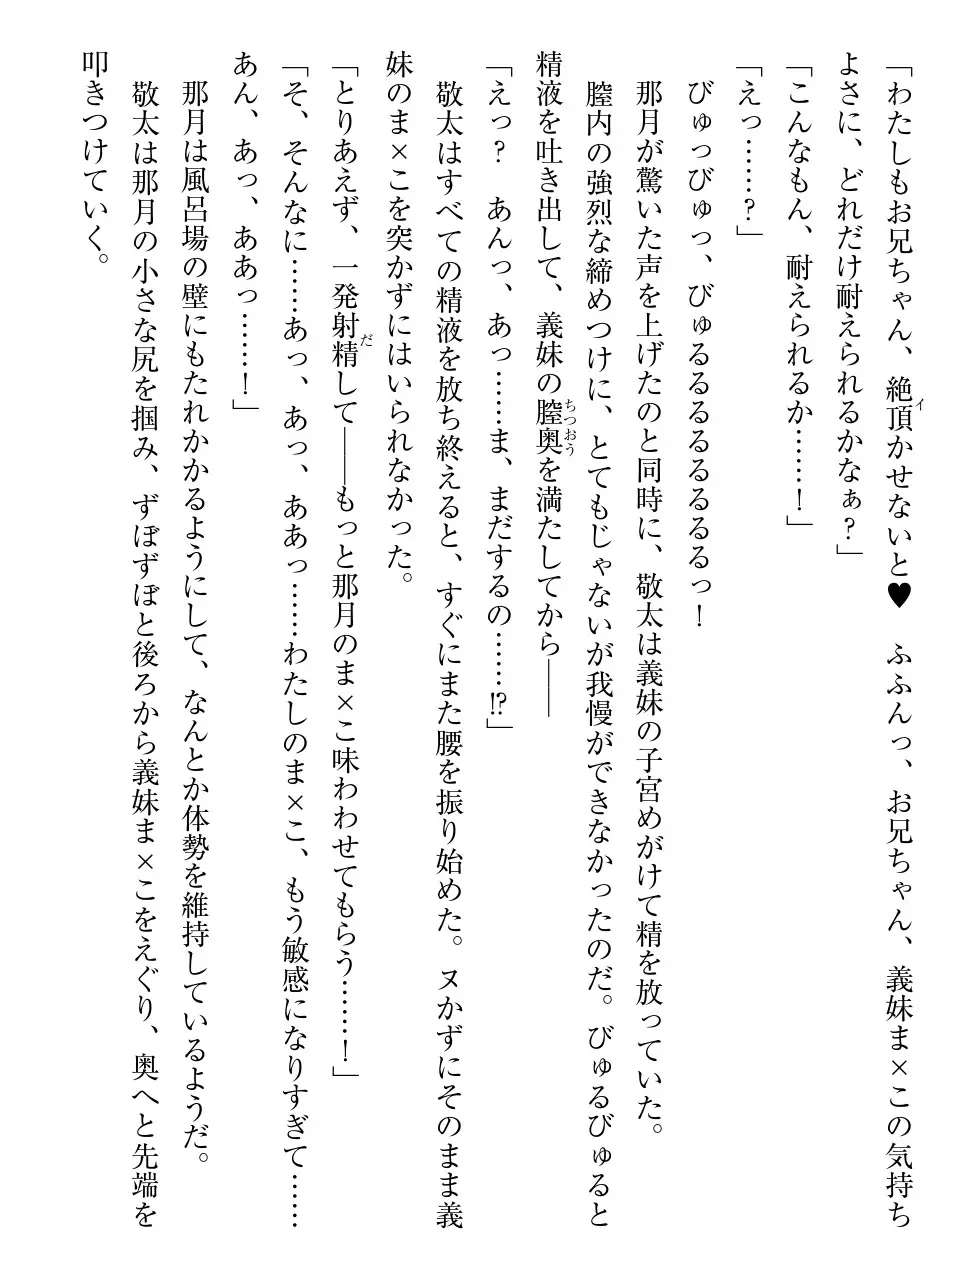 「わたしもお兄ちゃん、絶頂かせないと♥　ふふんっ、お兄ちゃん、義妹ま×この気持ち
よさに、どれだけ耐えられるかなぁ？」
「こんなもん、耐えられるか……！」
「えっ……？」
びゅっびゅっ、びゅるるるるるるるっ！
那月が驚いた声を上げたのと同時に、敬太は義妹の子宮めがけて精を放っていた。
膣内の強烈な締めつけに、とてもじゃないが我慢ができなかったのだ。びゅるびゅると
精液を吐き出して、義妹の膣奥を満たしてから――
「えっ？　あんっ、あっ……ま、まだするの……⁉」
敬太はすべての精液を放ち終えると、すぐにまた腰を振り始めた。ヌかずにそのまま義
妹のま×こを突かずにはいられなかった。
「とりあえず、一発射精して――もっと那月のま×こ味わわせてもらう……！」
「そ、そんなに……あっ、あっ、ああっ……わたしのま×こ、もう敏感になりすぎて……
あん、あっ、ああっ……！」
那月は風呂場の壁にもたれかかるようにして、なんとか体勢を維持しているようだ。
敬太は那月の小さな尻を掴み、ずぼずぼと後ろから義妹ま×こをえぐり、奥へと先端を
叩きつけていく。